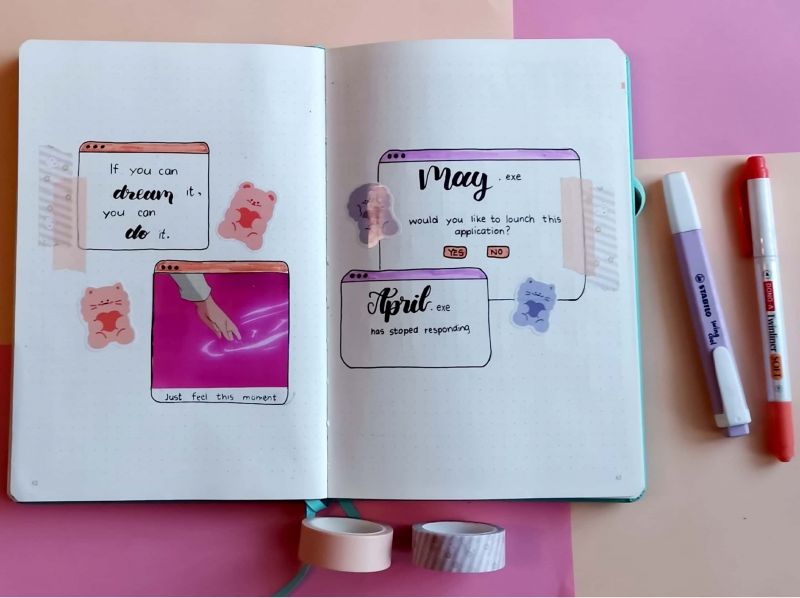 If you can
dream it,
you can
do it.
Just feel this moment
May.exe
would you like to lounch this
application?
YES NO
April.exe
has stoped responding
STABILO
swing cool
DONG-A
Twinliner
SOFT